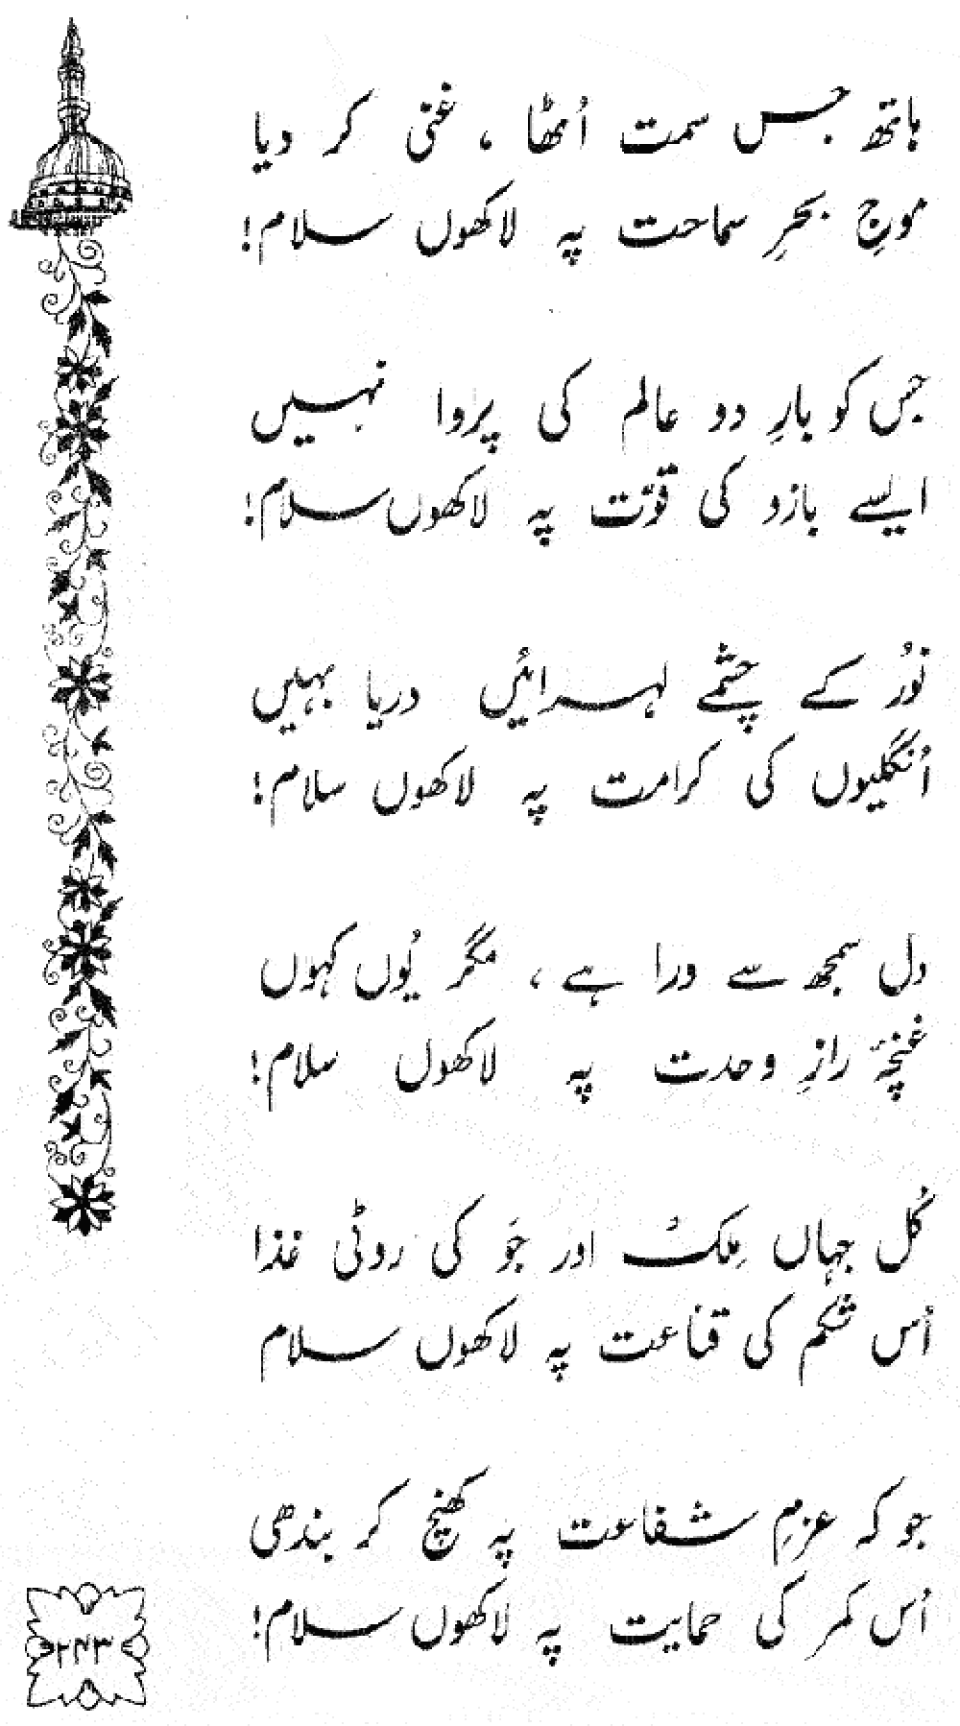 ہاتھ جس سمت اُٹھا ، غنی کر دیا
موجِ بحرِ سماحت پہ لاکھوں سلام!
جس کو بارِ دو عالم کی پروا نہیں
ایسے بازو کی قوّت پہ لاکھوں سلام!
نوُر کے چشمے لہرائیں دریا بہیں
اُنگلیوں کی کرامت پہ لاکھوں سلام!
دل سمجھ سے ورا ہے ، مگر یُوں کہوں
غنچۂ رازِ وحدت پہ لاکھوں سلام!
کُل جہاں مِلکُ اور جَو کی روٹی غذا
اُس شکم کی قناعت پہ لاکھوں سلام
جو کہ عزمِ شفاعت پہ کھنچ کر بندھی
اُس کمر کی حمایت پہ لاکھوں سلام!
۲۴۳